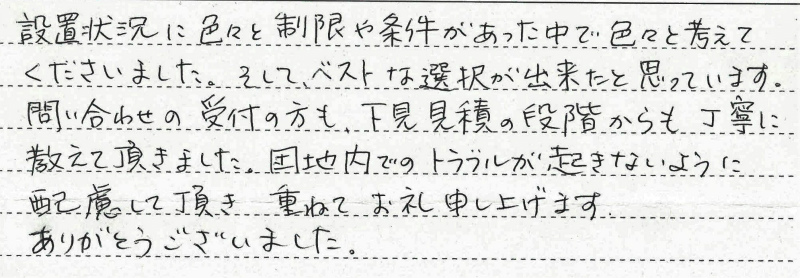 設置状況に色々と制限や条件があった中で色々と考えて
くださいました。そして、ベストな選択が出来たと思っています。
問い合わせの受付の方も、下見見積の段階からも丁寧に
教えて頂きました。団地内でのトラブルが起きないように
配慮して頂き 重ねてお礼申し上げます
ありがとうございました。